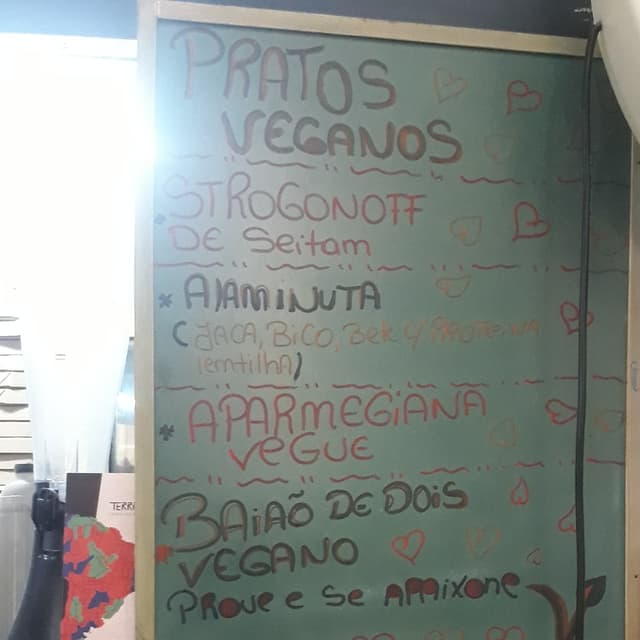 PRATOS
VEGANOS
* STROGONOFF
DE Seitam
* A)AMINUTA
(JACA, BiCO, Bek
lemtilhA)
* APARMEGiANA
VEGUE
BAiAÕ DE DOiS
VEGANO
PROVE e Se APAIXONE
TERR